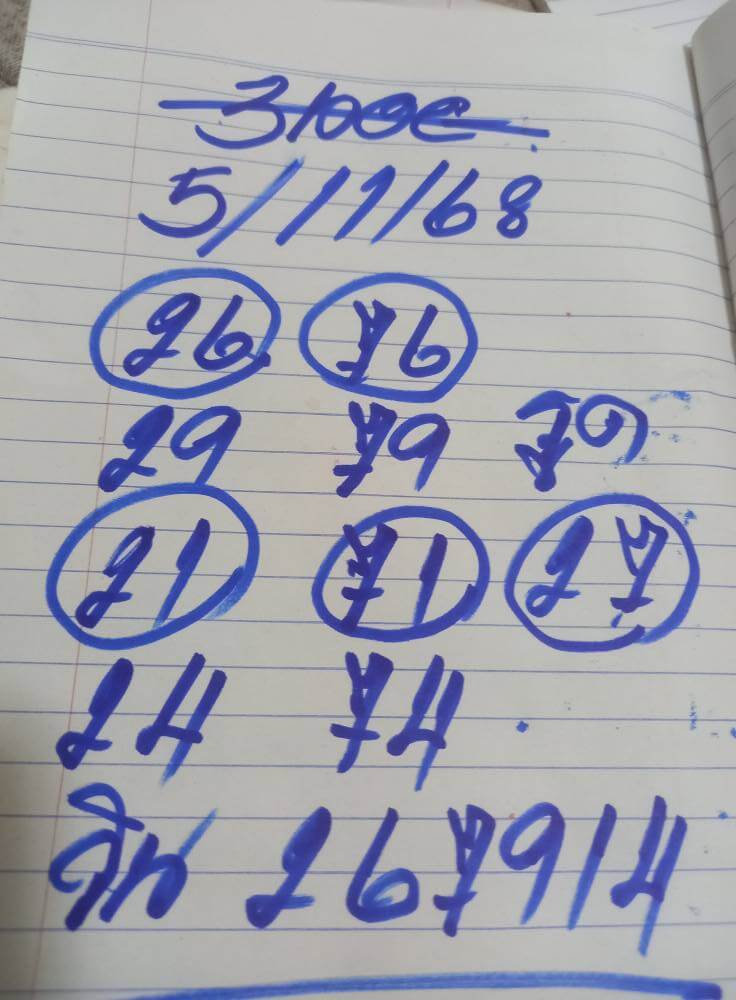 5/11/68
26 76
29 79
21 71 27
24 74
วิน 267914